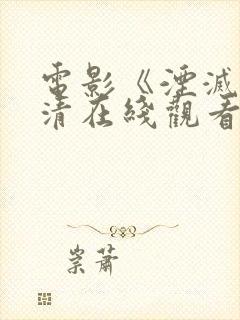 電影《湮滅
清在綫觀看
崇蕭